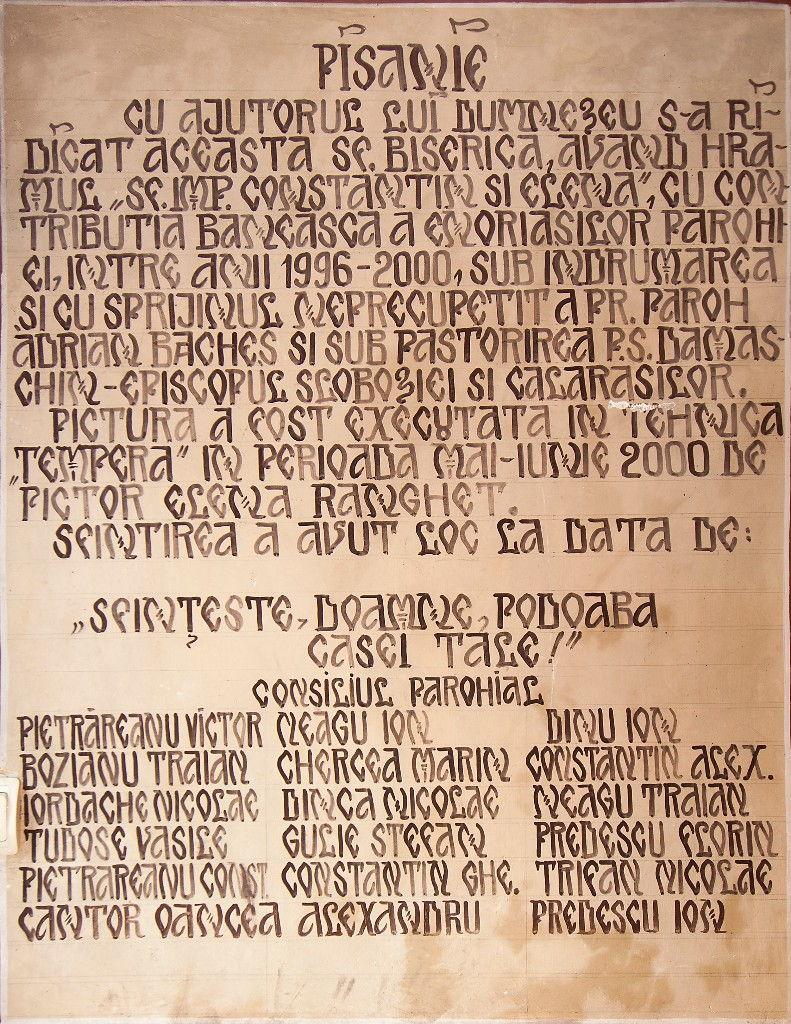 PISANIE
CU AJUTORUL LUI DUMNEZEU S-A RI-
DICAT ACEASTA SF. BISERICA, AVAND HRA-
MUL „SF. IMP. CONSTANTIN SI ELENA", CU CON-
TRIBUTIA BANEASCA A ENORIASILOR PAROHI-
EI, INTRE ANII 1996-2000, SUB INDRUMAREA
SI CU SPRIJINUL NEPRECUPETIT A PR. PAROH
ADRIAN BACHES SI SUB PASTORIREA P.S. DAMAS-
CHIN-EPISCOPUL SLOBOZIEI SI CALARASILOR.
PICTURA A FOST EXECUTATA IN TEHNICA
„TEMPERA" IN PERIOADA MAI-IUNIE 2000 DE
PICTOR ELENA RANGHET.
SFINTIREA A AVUT LOC LA DATA DE:
„SFINȚESTE, DOAMNE, PODOABA
CASEI TALE!"
CONSILIUL PAROHIAL
PIETRĂREANU VICTOR NEAGU ION DINU ION
BOZIANU TRAIAN CHERCEA MARIN CONSTANTIN ALEX.
IORDACHE NICOLAE DINCA NICOLAE NEAGU TRAIAN
TUDOSE VASILE GULIE STEFAN PREDESCU FLORIN
PIETRAREANU CONST. CONSTANTIN GHE. TRIFAN NICOLAE
CANTOR OANCEA ALEXANDRU PREDESCU ION